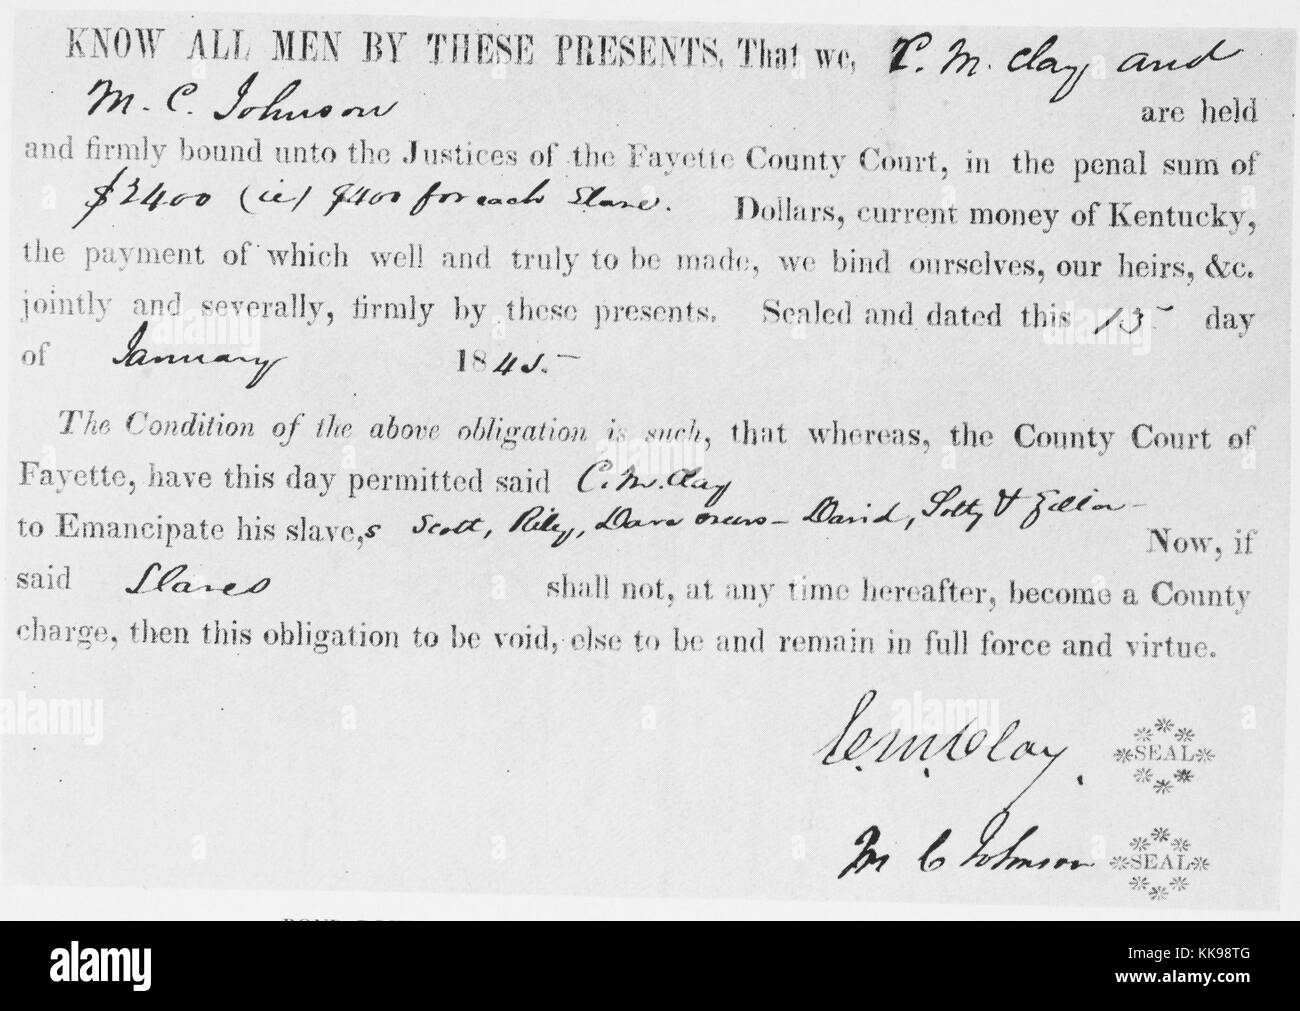 KNOW ALL MEN BY THESE PRESENTS, That we, C. M. Clay and
M. C. Johnson are held
and firmly bound unto the Justices of the Fayette County Court, in the penal sum of
$2400 (ie) $400 for each Slave. Dollars, current money of Kentucky,
the payment of which well and truly to be made, we bind ourselves, our heirs, &c.
jointly and severally, firmly by these presents. Sealed and dated this 13 day
of January 1845.
The Condition of the above obligation is such, that whereas, the County Court of
Fayette, have this day permitted said C. M. Clay
to Emancipate his slave,s Scott, Riley, David,
Now, if
said Slaves shall not, at any time hereafter, become a County
charge, then this obligation to be void, else to be and remain in full force and virtue.
C. M. Clay. SEAL
M C Johnson SEAL
alamy
Image ID: KK98TG
www.alamy.com